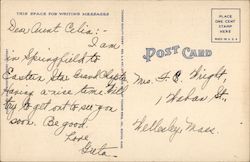 THIS SPACE FOR WRITING MESSAGES
POST CARD
PLACE
ONE CENT
STAMP
HERE
Dear Aunt Celia:-
I am
in Springfield to
Eastern Star Grand Chapter
Having a nice time. Will
try to get out to see you
soon. Be good
Love
Greta.
Mrs. F. C. Wright,
1 Waban St.,
Wellesley, Mass.